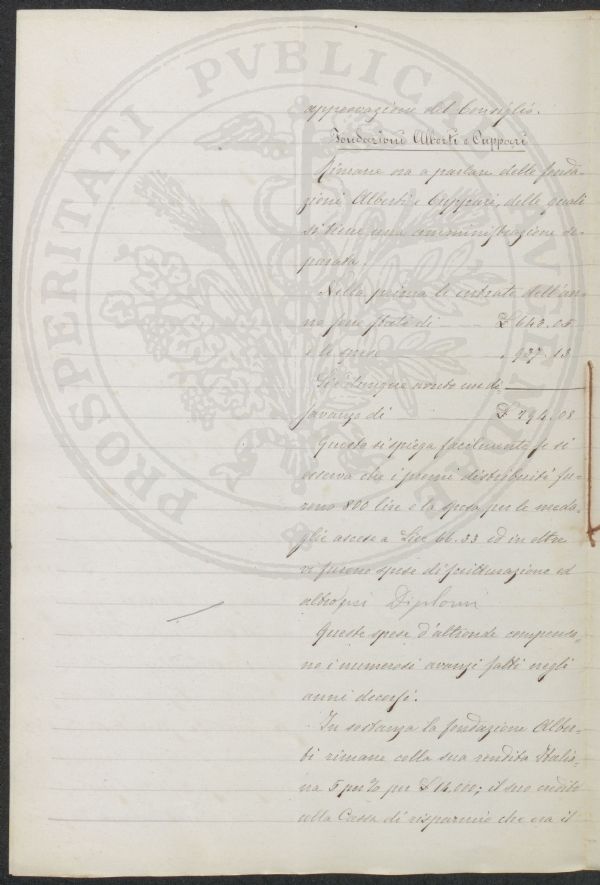 PROSPERITATI PVBLICAE AVGENDAE
approvazione del Consiglio.
Fondazioni Alberti e Cuppari
Rimane ora a parlare delle fonda-
zioni Alberti e Cuppari, delle quali
si tiene una amministrazione se-
parata.
Nella prima le entrate dell'an-
no furo state di £ 643.05
e le spese " 937.13
Si è dunque avuto un di
savanzo di £ 294.08
Questo si spiega facilmente se si
osserva che i premi distribuiti fu-
rono 800 lire e la spesa per le meda-
glie ascese a Lire 66.33 ed in oltre
vi furono spese di scritturazione ed
altro pei Diplomi
Queste spese d'altronde compensa-
no i numerosi avanzi fatti negli
anni decorsi.
In sostanza la fondazione Alber-
ti rimane colla sua rendita Italia-
na 5 per % per £ 14.000; il suo credito
colla Cassa di risparmio che era il